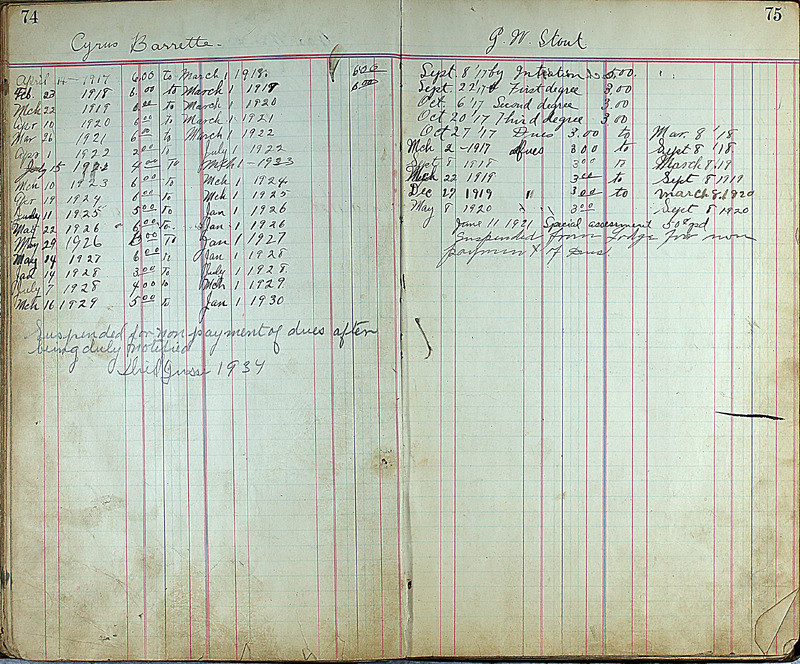 74
Cyrus Barrette.
April 14 - 1917 6.00 to March 1 1918. 6.00
Feb. 23 1918 6.00 to March 1 1919 6.00
Mch 22 1919 6.00 to March 1 1920
Apr 10 1920 6.00 to March 1 1921
Mar 26 1921 6.00 to March 1 1922
Apr 1 1922 2.00 to July 1 1922
July 15 1922 4.00 To Mch 1 - 1923
Mch 10 1923 6.00 to Mch 1 1924
Apr 19 1924 6.00 to Mch 1 1925
July 11 1925 5.00 To Jan 1 1926
May 22 1926 6.00 to Jan 1 1926
May 29 1926 3.00 To Jan 1 1927
May 14 1927 6.00 to Jan 1 1928
Jan 14 1928 3.00 To July 1 1928
July 7 1928 4.00 to Mch 1 1929
Mch 16 1929 5.00 to Jan 1 1930
Suspended for non payment of dues after
being duly notified
1934
75
G. W. Stout
Sept. 8 '17 by 5.00.
Sept. 22 '17 First degree 3.00
Oct. 6 '17 Second degree 3.00
Oct 20 '17 Third degree 3.00
Oct 27 '17 Dues 3.00 to Mar. 8 '18
Mch 2 - 1917 dues 3.00 to Sept 8 '18
Sept 8 1918 3.00 to March 8, 19
Mch 22 1919 3.00 to Sept 8 1919
Dec 29 1919 " 3.00 to March 8, 1920
May 8 1920 3.00 Sept 8 1920
June 11 1921 Special assessment 50¢ pd
Suspended from Lodge for non
payment of Dues.